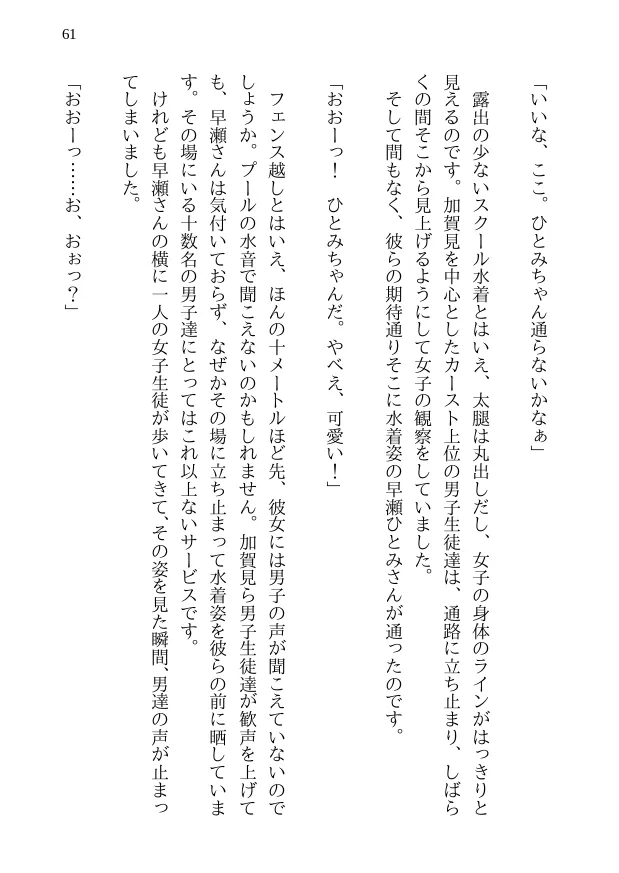 61
「いいな、ここ。ひとみちゃん通らないかなぁ」
露出の少ないスクール水着とはいえ、太腿は丸出しだし、女子の身体のラインがはっきりと
見えるのです。加賀見を中心としたカースト上位の男子生徒達は、通路に立ち止まり、しばら
くの間そこから見上げるようにして女子の観察をしていました。
そして間もなく、彼らの期待通りそこに水着姿の早瀬ひとみさんが通ったのです。
「おおーっ！　ひとみちゃんだ。やべえ、可愛い！」
フェンス越しとはいえ、ほんの十メートルほど先、彼女には男子の声が聞こえていないので
しょうか。プールの水音で聞こえないのかもしれません。加賀見ら男子生徒達が歓声を上げて
も、早瀬さんは気付いておらず、なぜかその場に立ち止まって水着姿を彼らの前に晒していま
す。その場にいる十数名の男子達にとってはこれ以上ないサービスです。
けれども早瀬さんの横に一人の女子生徒が歩いてきて、その姿を見た瞬間、男達の声が止まっ
てしまいました。
「おおーっ……お、おぉっ？」